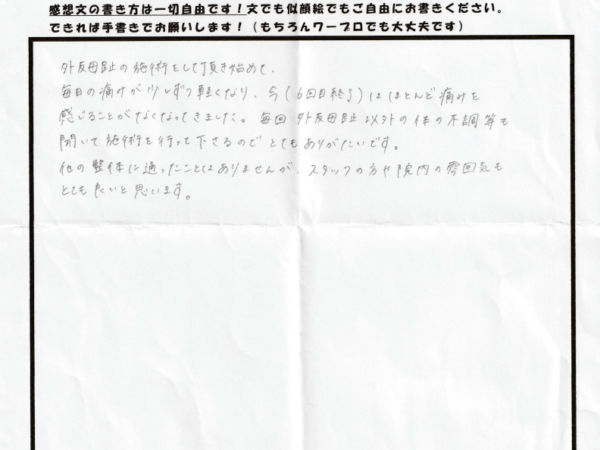 感想文の書き方は一切自由です!文でも似顔絵でもご自由にお書きください。
できれば手書きでお願いします!(もちろんワープロでも大丈夫です)
外反母趾の施術をして頂き始めて、
毎日の痛みが少しずつ軽くなり、今(6回目終了)はほとんど痛みを
感じることがなくなってきました。毎回外反母趾以外の体の不調等も
聞いて施術を行って下さるのでとてもありがたいです。
他の整体に通ったことはありませんが、スタッフの方や院内の雰囲気も
とても良いと思います。